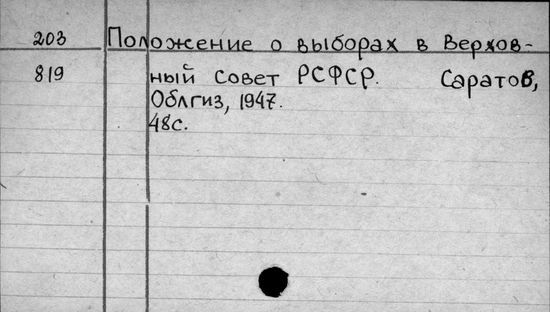 203 Положение о выборах в Верхов-
819 ный Совет РСФСР. Саратов,
Облгиз, 1947.
48с.